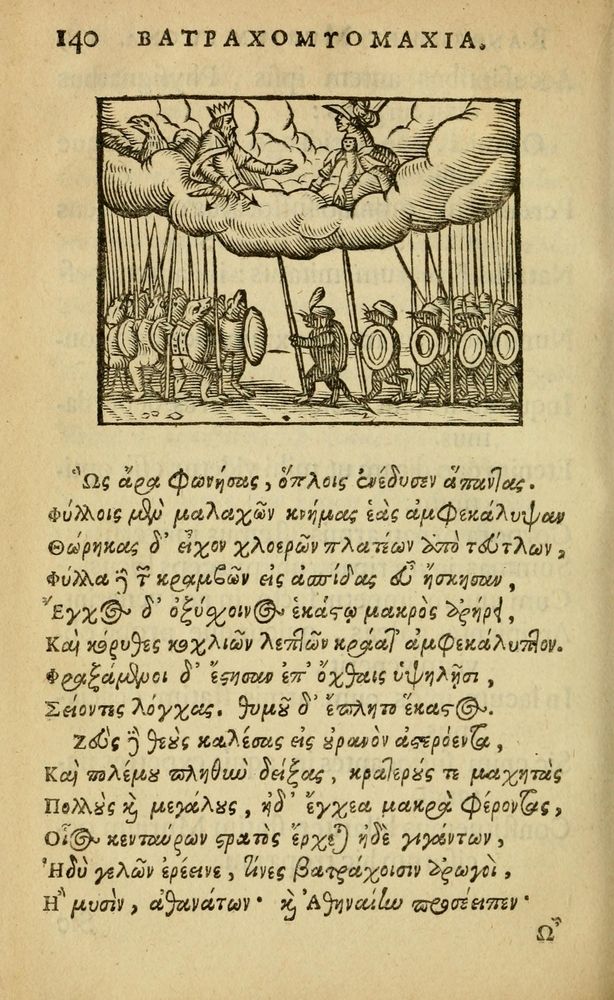 140 ΒΑΤΡΑΧΟΜΥΟΜΑΧΙΑ.
Ὣς ἄρα φωνήσας, ὅπλοις ἐνέδυσεν ἅπαντας.
Φύλλοις μὲν μαλαχῶν κνήμας ἑὰς ἀμφεκάλυψαν
Θώρηκας δ' εἶχον χλοερῶν πλατέων ἀπὸ τεύτλων,
Φύλλα δὲ τῶν κραμβῶν εἰς ἀσπίδας εὖ ἤσκησαν,
Ἔγχος δ' ὀξύχοινος ἑκάστῳ μακρὸς ἀρήρει,
Καὶ κόρυθες κοχλιῶν λεπτῶν κράατ' ἀμφεκάλυπτον.
Φραξάμενοι δ' ἔστησαν ἐπ' ὄχθαις ὑψηλῇσι,
Σείοντες λόγχας. θυμοῦ δ' ἔπλητο ἕκαστος.
Ζεὺς δὲ θεοὺς καλέσας εἰς οὐρανὸν ἀστερόεντα,
Καὶ πολέμου πληθὺν δείξας, κρατερούς τε μαχητὰς
Πολλοὺς καὶ μεγάλους, ἠδ' ἔγχεα μακρὰ φέροντας,
Οἷος κενταύρων στρατὸς ἔρχεται ἠδὲ γιγάντων,
Ἡδὺ γελῶν ἐρέεινε, τίνες βατράχοισιν ἀρωγοὶ,
Ἢ μυσὶν, ἀθανάτων· καὶ Ἀθηναίην προσέειπεν·
Ὦ